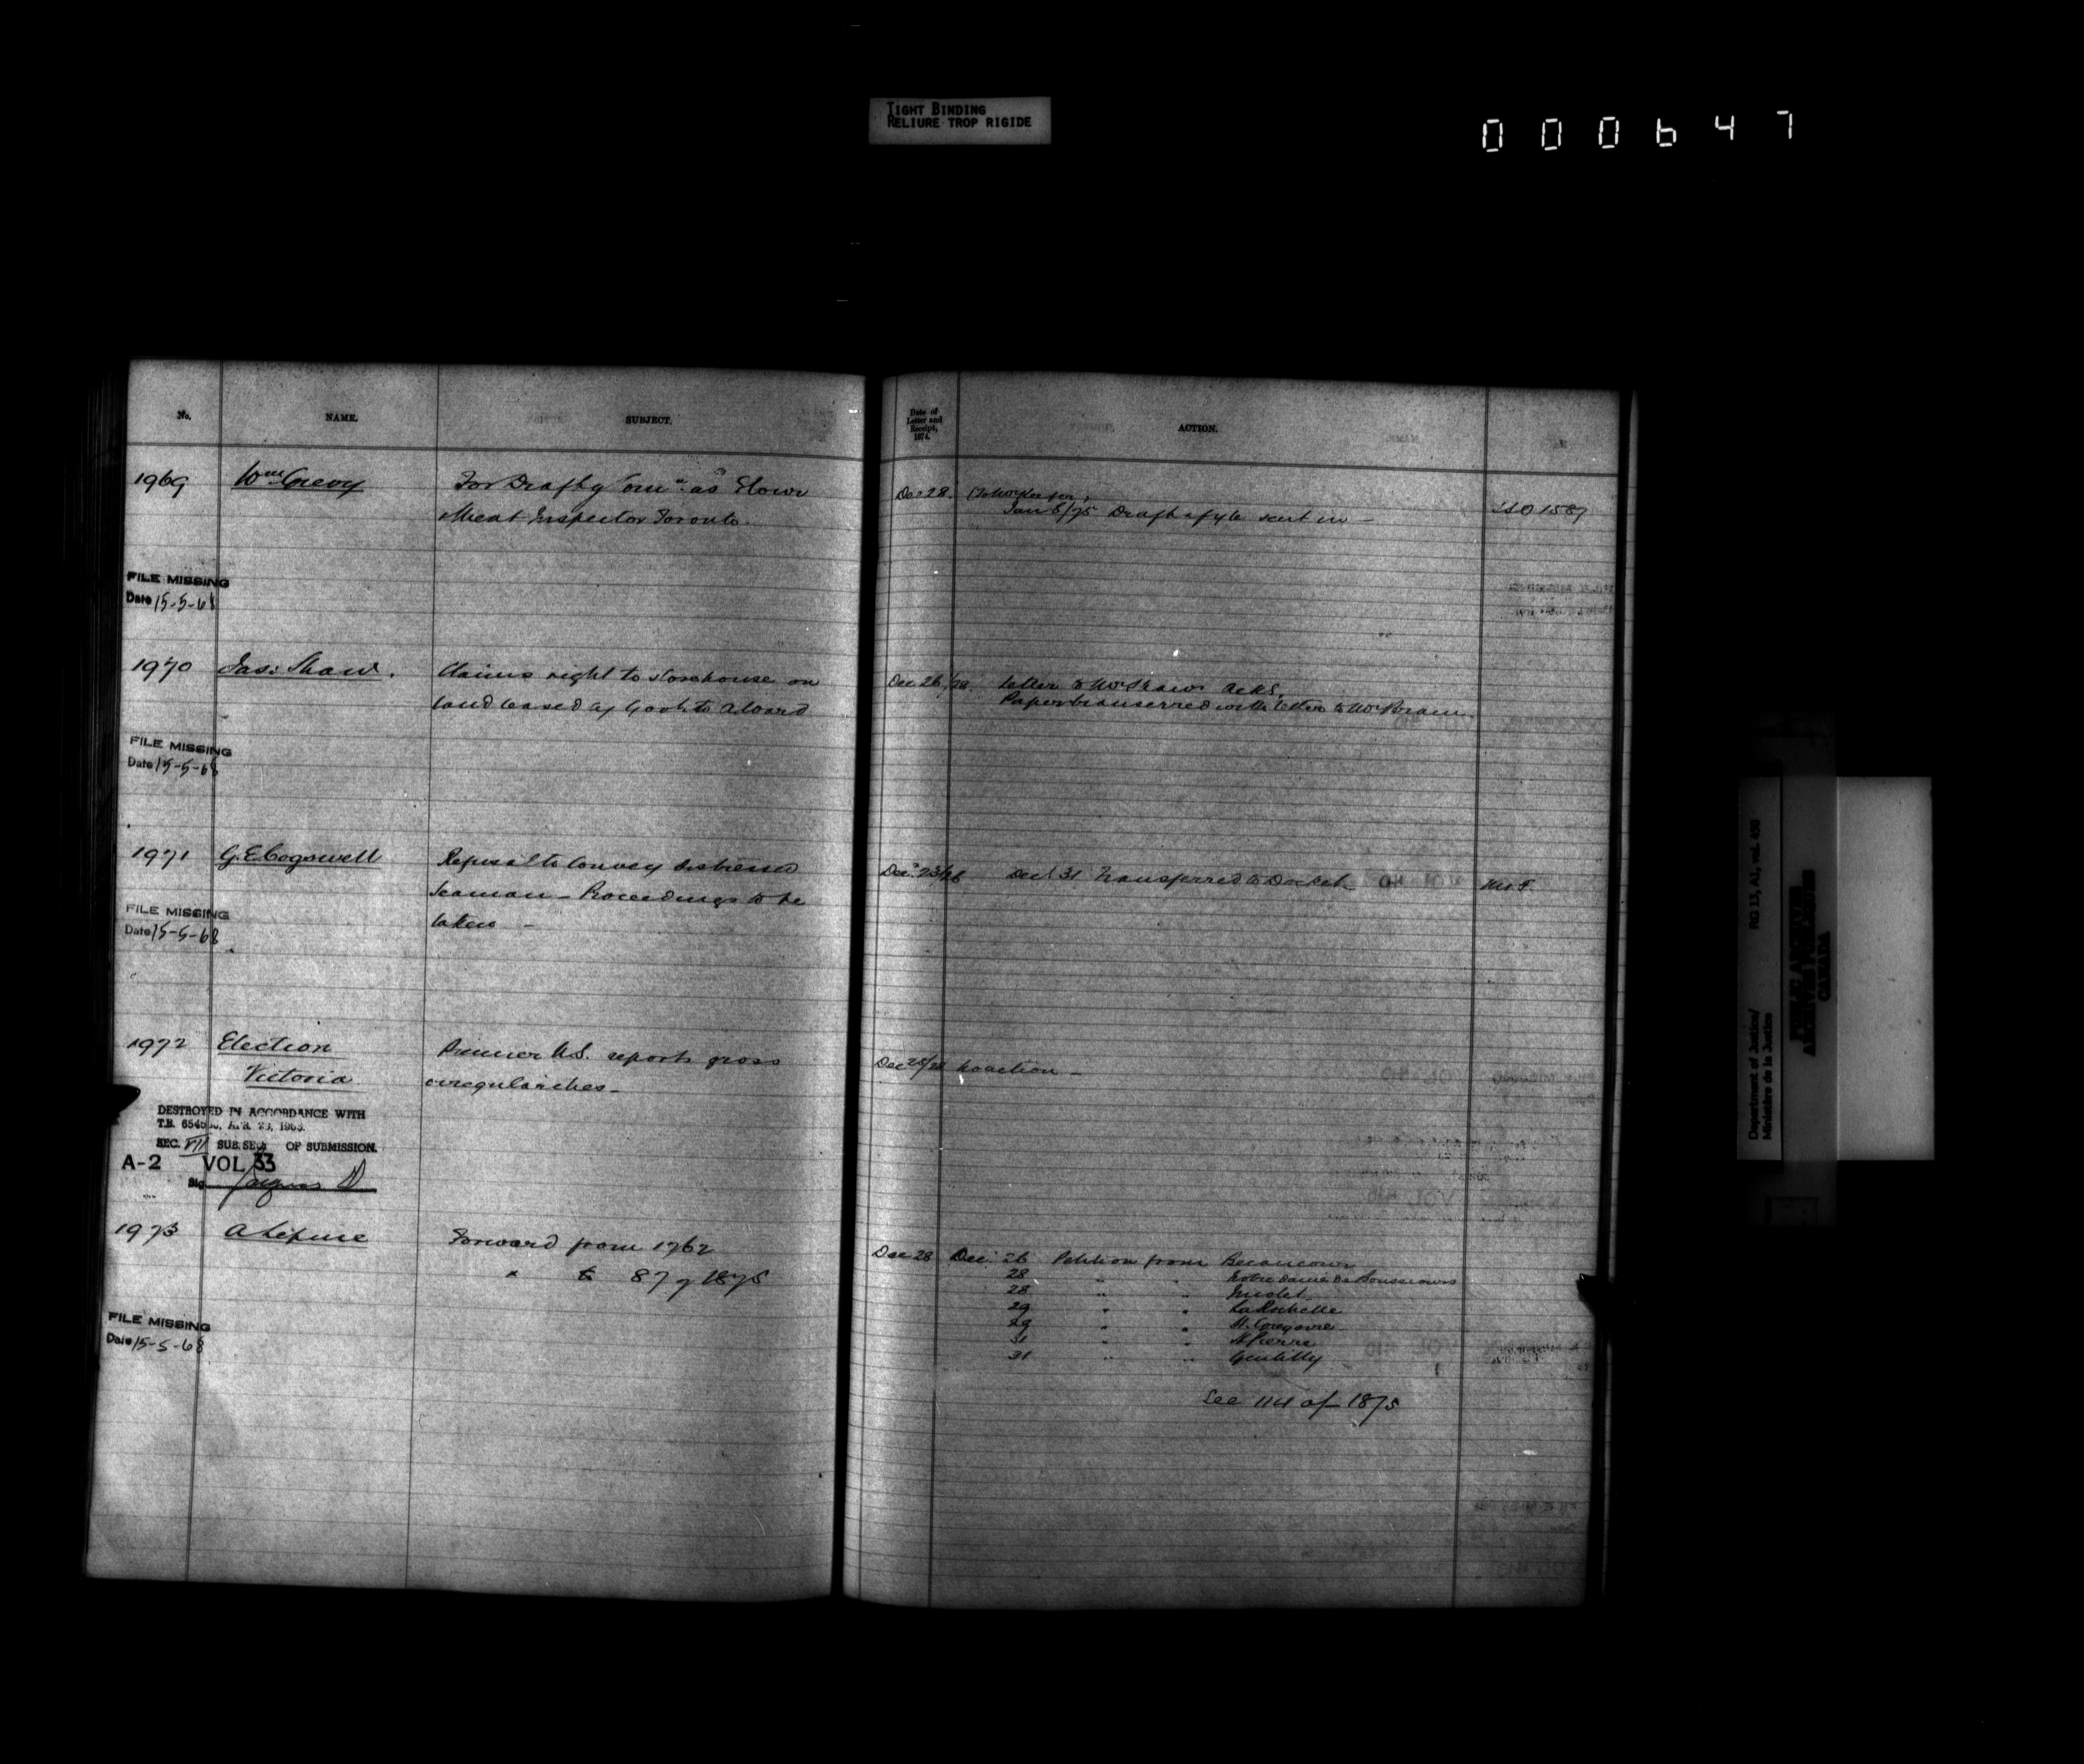 TIGHT BINDING
RELIURE TROP RIGIDE
000647
No. NAME. SUBJECT.
Date of Letter and Receipt, 1874. ACTION.
1969 Wm Grevy For Draft of Comn. as Flour
Meat Inspector Toronto.
Dec 28.
Jan 5/75 Draft & fyle sent in — 1587
FILE MISSING
Date 15-5-68
1970 Jas: Shaw. Claims right to storehouse on
land leased by Govt. to
Dec 26/28 Letter to Mr Shaw ackg.
Papers transferred with letter to Mr
FILE MISSING
Date 15-5-68
1971 G.E. Cogswell Refusal to convey distressed
Seaman — Proceedings to be
taken —
Dec. 23/28 Decr 31 Transferred to Docket
FILE MISSING
Date 15-5-68
1972 Election
Victoria
reports gross
irregularities —
Dec 28 No action —
DESTROYED IN ACCORDANCE WITH
T.B. APR. 23, 1963.
SEC. VII SUB.SEC. OF SUBMISSION.
A-2 VOL 33
Sig
1973 A Lepine Forward from 1762
" to 87 of 1875
Dec 28 Dec. 26 Petition from Becancour
28 " " Notre Dame de Bonsecours
28 " " Nicolet
29 " " La Rochelle
29 " " St. Gregoire
31 " " St Pierre
31 " " Gentilly
See 114 of 1875
FILE MISSING
Date 15-5-68
Department of Justice/
Ministère de la Justice
RG 13, A1, vol. 438
PUBLIC ARCHIVES
ARCHIVES PUBLIQUES
CANADA